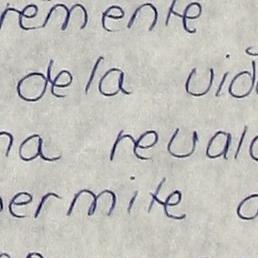 remente
dela vid
na revalo
ermite